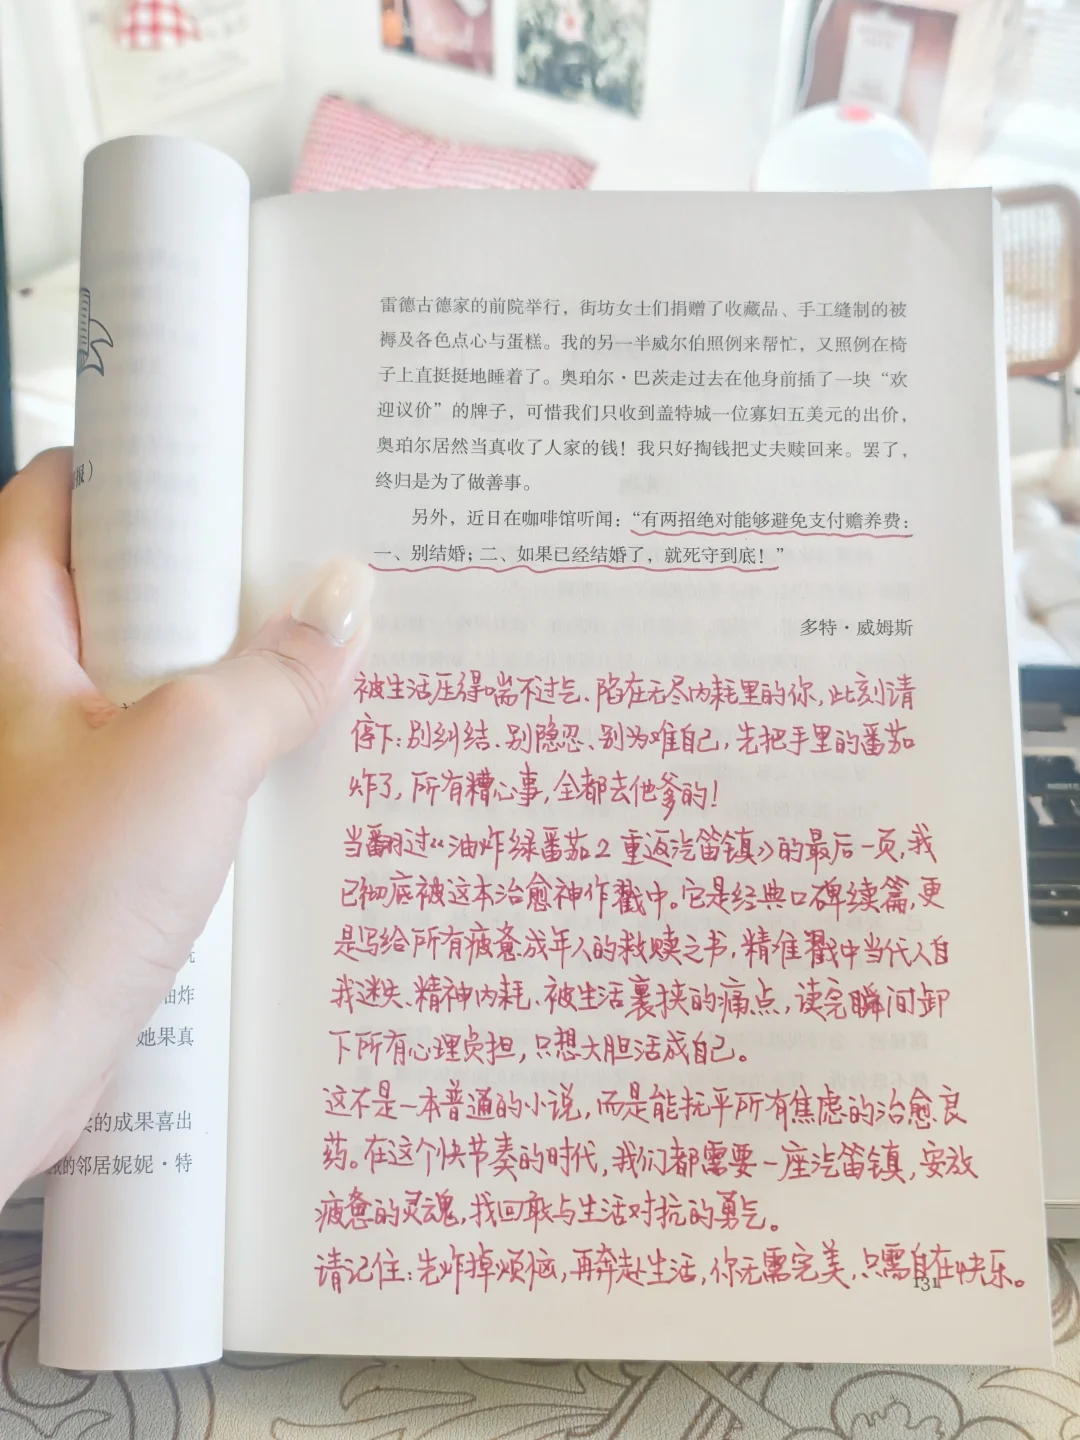 报）
油炸
她果真
的成果喜出
的邻居妮妮·特
雷德古德家的前院举行，街坊女士们捐赠了收藏品、手工缝制的被
褥及各色点心与蛋糕。我的另一半威尔伯照例来帮忙，又照例在椅
子上直挺挺地睡着了。奥珀尔·巴茨走过去在他身前插了一块“欢
迎议价”的牌子，可惜我们只收到盖特城一位寡妇五美元的出价，
奥珀尔居然当真收了人家的钱！我只好掏钱把丈夫赎回来。罢了，
终归是为了做善事。
另外，近日在咖啡馆听闻：“有两招绝对能够避免支付赡养费：
一、别结婚；二、如果已经结婚了，就死守到底！”
多特·威姆斯
被生活压得喘不过气、陷在无尽内耗里的你，此刻请
停下：别纠结、别隐忍、别为难自己，先把手里的番茄
炸了，所有糟心事，全都去他爹的！
当翻过《油炸绿番茄2 重返汽笛镇》的最后一页，我
已彻底被这本治愈神作戳中。它是经典口碑续篇，更
是写给所有疲惫成年人的救赎之书，精准戳中当代人自
我迷失、精神内耗、被生活裹挟的痛点，读完瞬间卸
下所有心理负担，只想大胆活成自己。
这不是一本普通的小说，而是能抚平所有焦虑的治愈良
药。在这个快节奏的时代，我们都需要一座汽笛镇，安放
疲惫的灵魂，找回敢与生活对抗的勇气。
请记住：先炸掉烦恼，再奔赴生活，你无需完美，只需自在快乐。
131